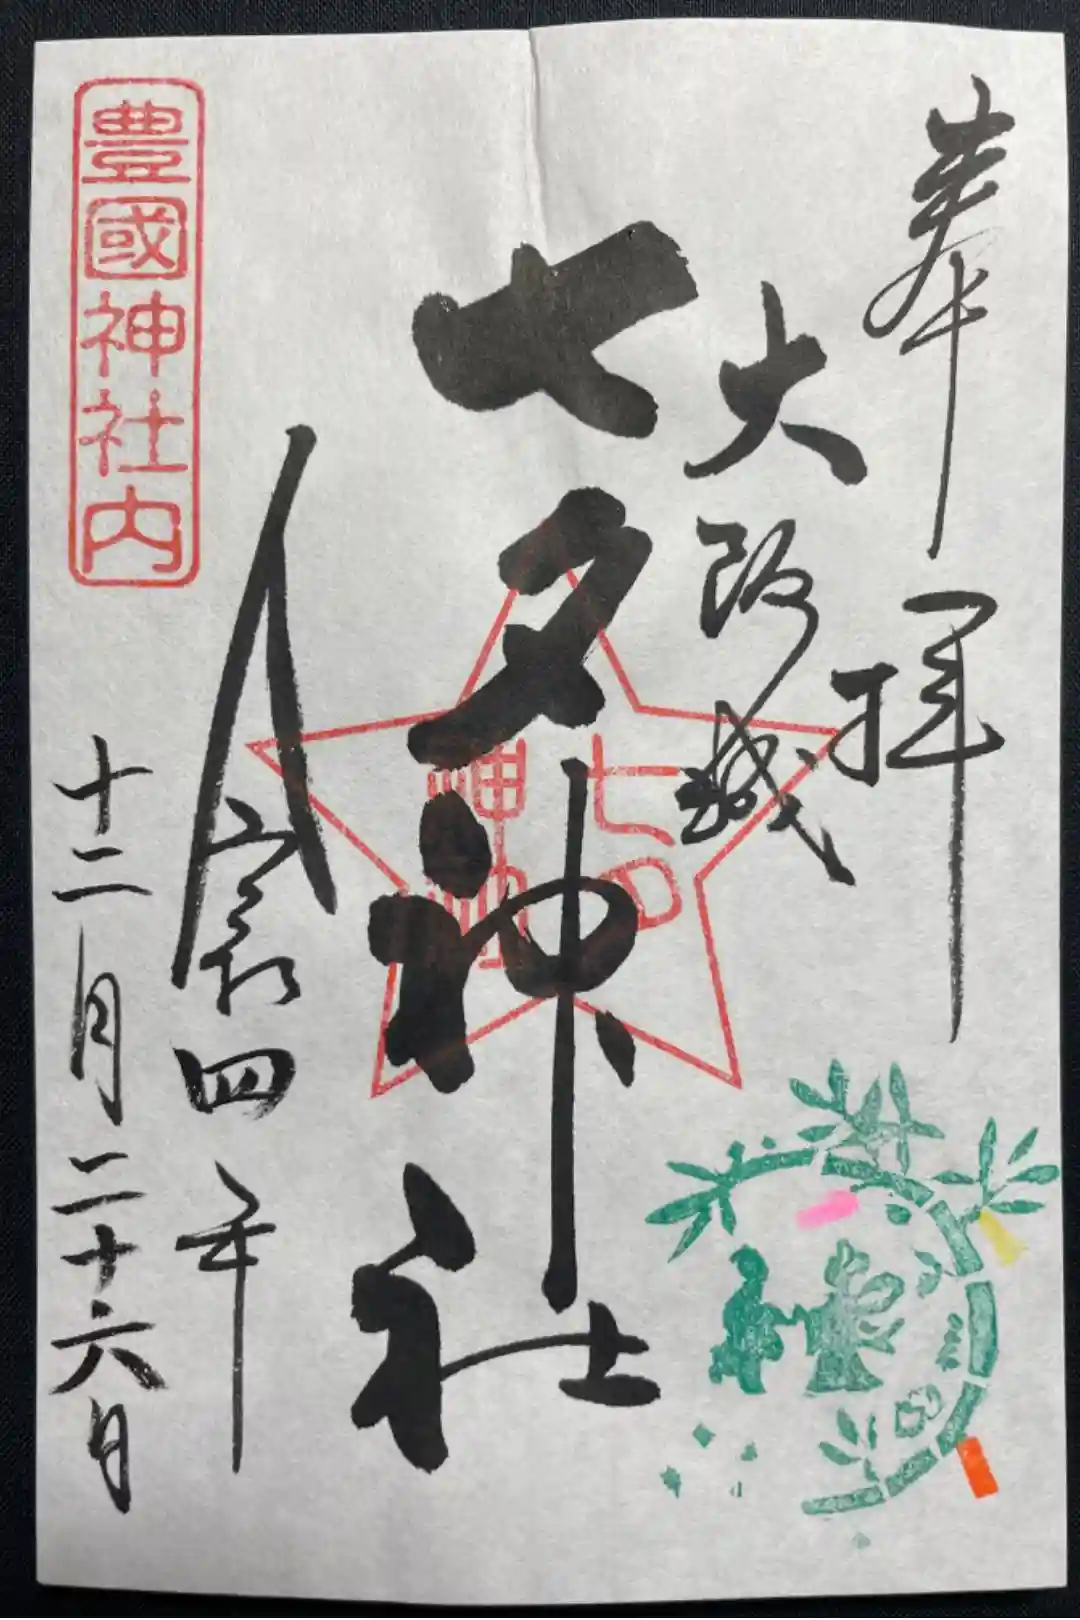 奉拝
大阪城
七夕神社
七夕
神社
令和四年
十二月二十六日
豊國神社内